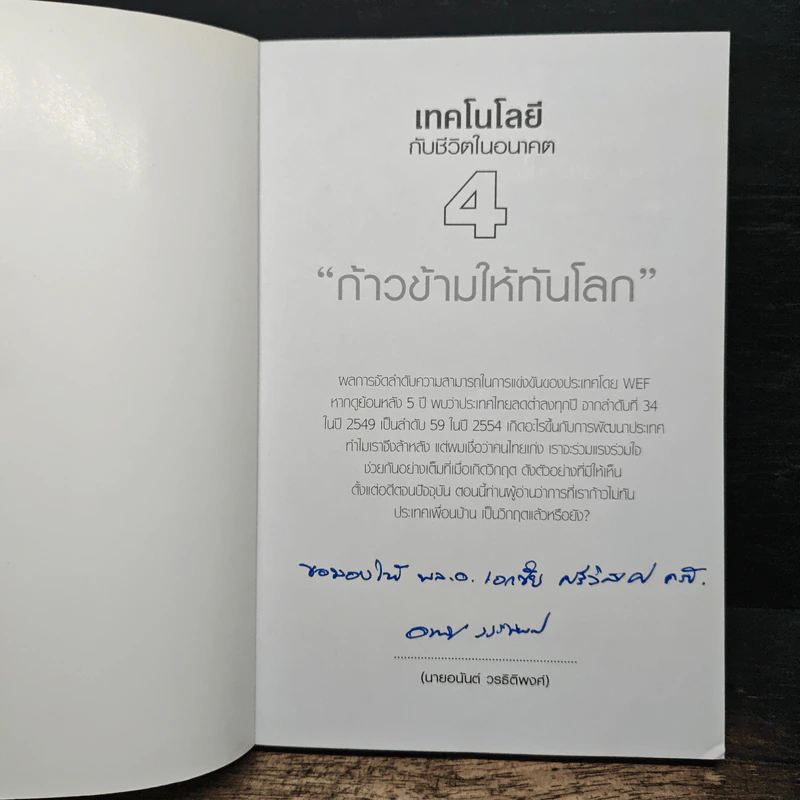 เทคโนโลยี
กับชีวิตในอนาคต
4
“ก้าวข้ามให้ทันโลก”
ผลการจัดลำดับความสามารถในการแข่งขันของประเทศโดย WEF
หากดูย้อนหลัง 5 ปี พบว่าประเทศไทยลดต่ำลงทุกปี จากลำดับที่ 34
ในปี 2549 เป็นลำดับ 59 ในปี 2554 เกิดอะไรขึ้นกับการพัฒนาประเทศ
ทำไมเราจึงล้าหลัง แต่ผมเชื่อว่าคนไทยเก่ง เราจะร่วมแรงร่วมใจ
ช่วยกันอย่างเต็มที่เมื่อเกิดวิกฤต ดังตัวอย่างที่มีให้เห็น
ตั้งแต่อดีตจนปัจจุบัน ตอนนี้ท่านผู้อ่านว่าการที่เราก้าวไม่ทัน
ประเทศเพื่อนบ้าน เป็นวิกฤตแล้วหรือยัง?
ขอมอบให้ พล.อ. เอกชัย ครับ.
(นายอนันต์ วรธิติพงศ์)